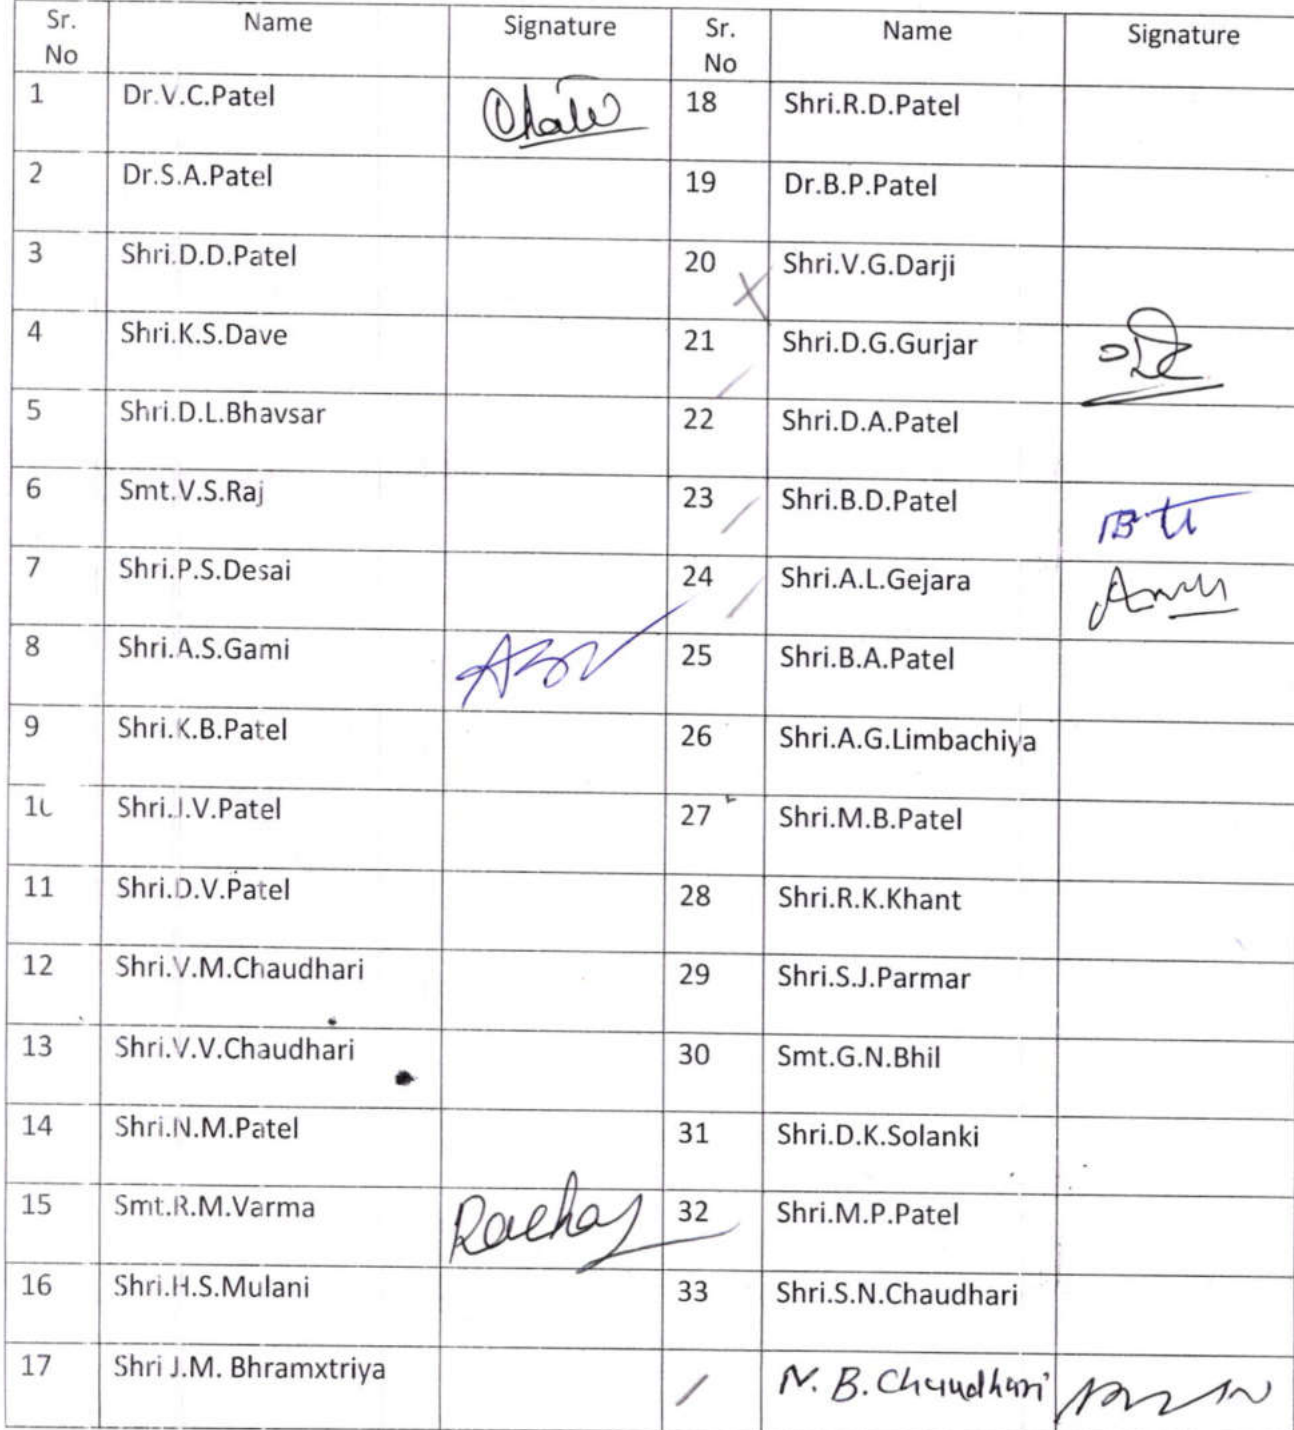 Sr. No Name Signature Sr. No Name Signature
1 Dr.V.C.Patel 18 Shri.R.D.Patel
2 Dr.S.A.Patel 19 Dr.B.P.Patel
3 Shri.D.D.Patel 20 Shri.V.G.Darji
4 Shri.K.S.Dave 21 Shri.D.G.Gurjar
5 Shri.D.L.Bhavsar 22 Shri.D.A.Patel
6 Smt.V.S.Raj 23 Shri.B.D.Patel
7 Shri.P.S.Desai 24 Shri.A.L.Gejara
8 Shri.A.S.Gami 25 Shri.B.A.Patel
9 Shri.K.B.Patel 26 Shri.A.G.Limbachiya
10 Shri.J.V.Patel 27 Shri.M.B.Patel
11 Shri.D.V.Patel 28 Shri.R.K.Khant
12 Shri.V.M.Chaudhari 29 Shri.S.J.Parmar
13 Shri.V.V.Chaudhari 30 Smt.G.N.Bhil
14 Shri.N.M.Patel 31 Shri.D.K.Solanki
15 Smt.R.M.Varma 32 Shri.M.P.Patel
16 Shri.H.S.Mulani 33 Shri.S.N.Chaudhari
17 Shri J.M. Bhramxtriya N. B. Chaudhari